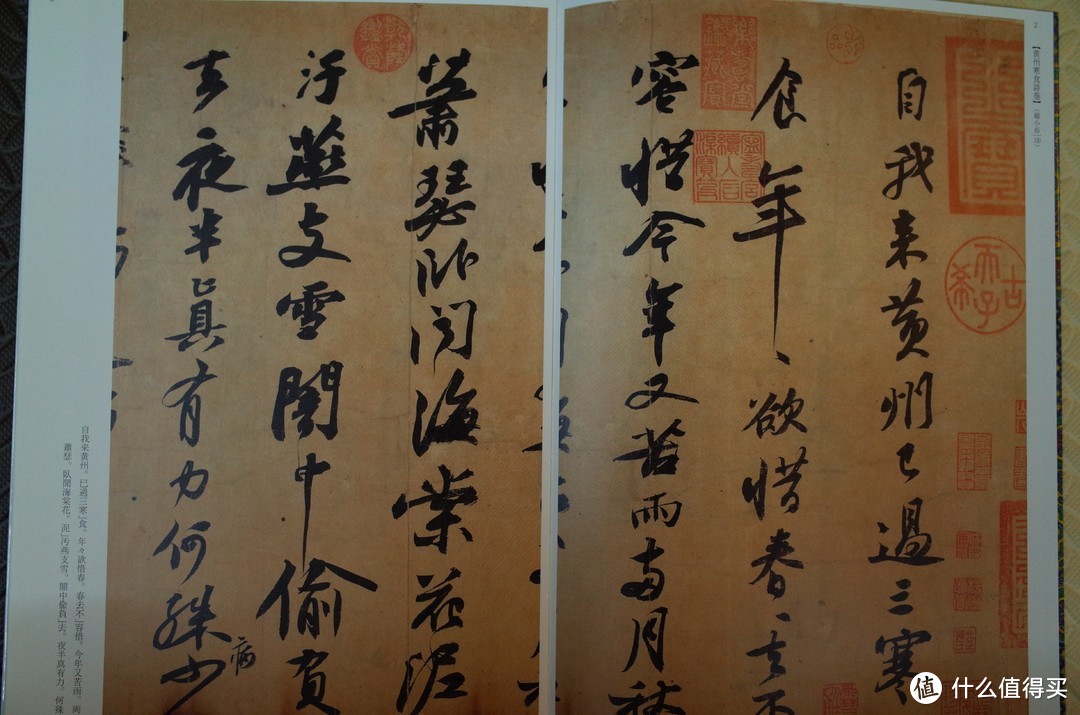 2
【黄州寒食詩卷】
古希天子
自我来黄州已過三寒
食年〻欲惜春〻去不
容惜今年又苦雨兩月秋
蕭瑟卧聞海棠花泥
汙燕支雪闇中偷負
去夜半真有力何殊少
病
自我来黄州。已過三寒」食。年々欲惜春。春去不」容惜。今年又苦雨。兩
蕭瑟。臥聞海棠花。泥」汚燕支雪。闇中偸負」去。夜半真有力。何殊
值 什么值得买